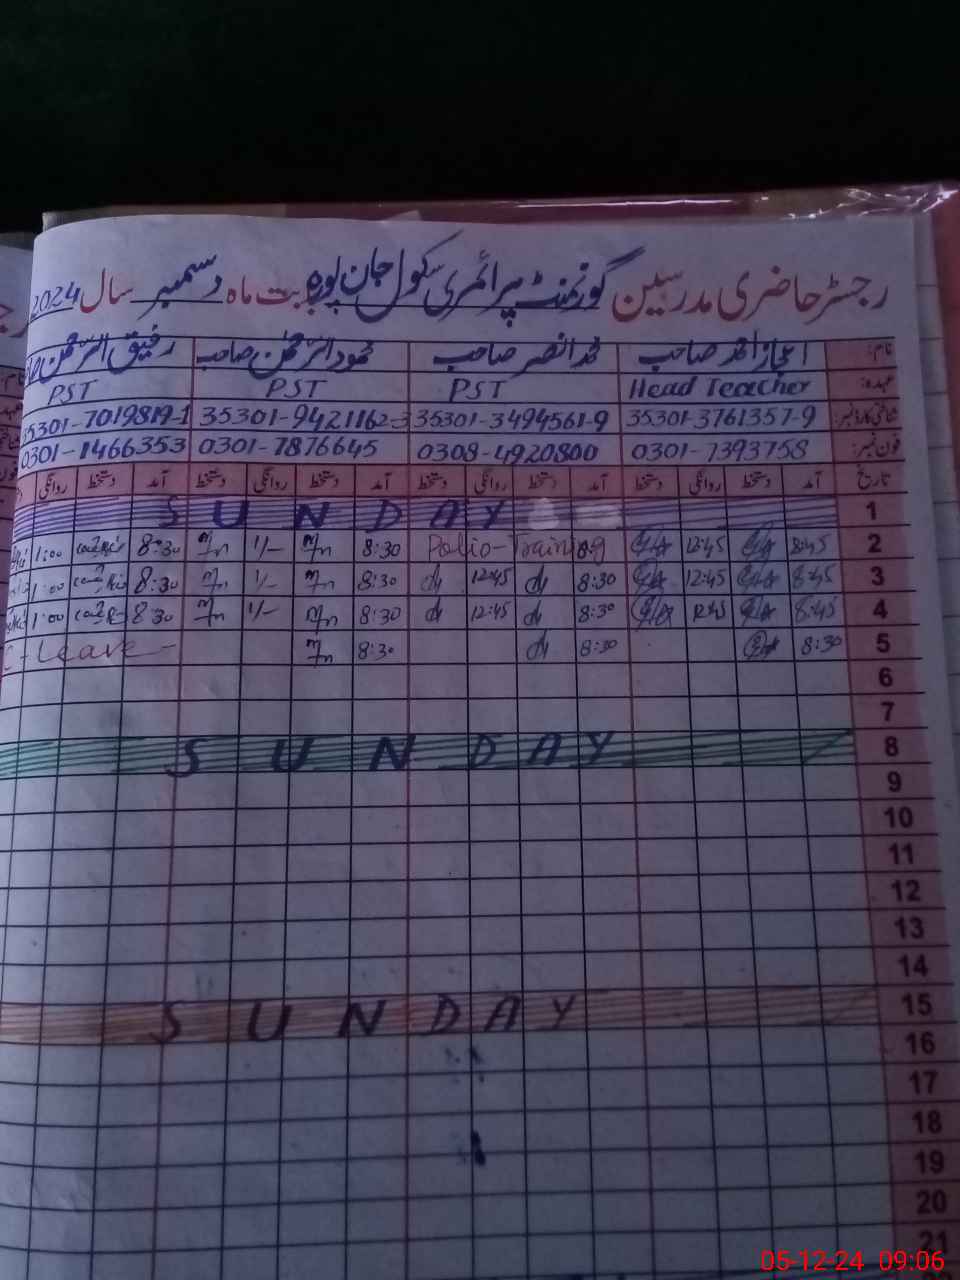 رجسٹر حاضری مدرسین گورنمنٹ پرائمری سکول جان پورہ بابت ماہ دسمبر سال 2024
نام: اعجاز احمد صاحب محمد انصر صاحب محمود الرحمٰن صاحب رفیق الرحمٰن
عہدہ: Head Teacher PST PST PST
شناختی کارڈ نمبر: 35301-3761357-9 35301-3494561-9 35301-9421162-3 35301-7019819-1
فون نمبر: 0301-7393758 0308-4920800 0301-7876645 0301-1466353
تاریخ آمد دستخط روانگی دستخط آمد دستخط روانگی دستخط آمد دستخط روانگی دستخط آمد دستخط روانگی
1 SUNDAY
2 8:45 12:45 Polio-Training 8:30 1/- 8:30 1:00
3 8:45 12:45 8:30 12:45 8:30 1/- 8:30 1:00
4 8:45 12:45 8:30 12:45 8:30 1/- 8:30 1:00
5 8:30 8:30 8:30 C-Leave-
6
7
8 SUNDAY
9
10
11
12
13
14
15 SUNDAY
16
17
18
19
20
21
05-12-24 09:06